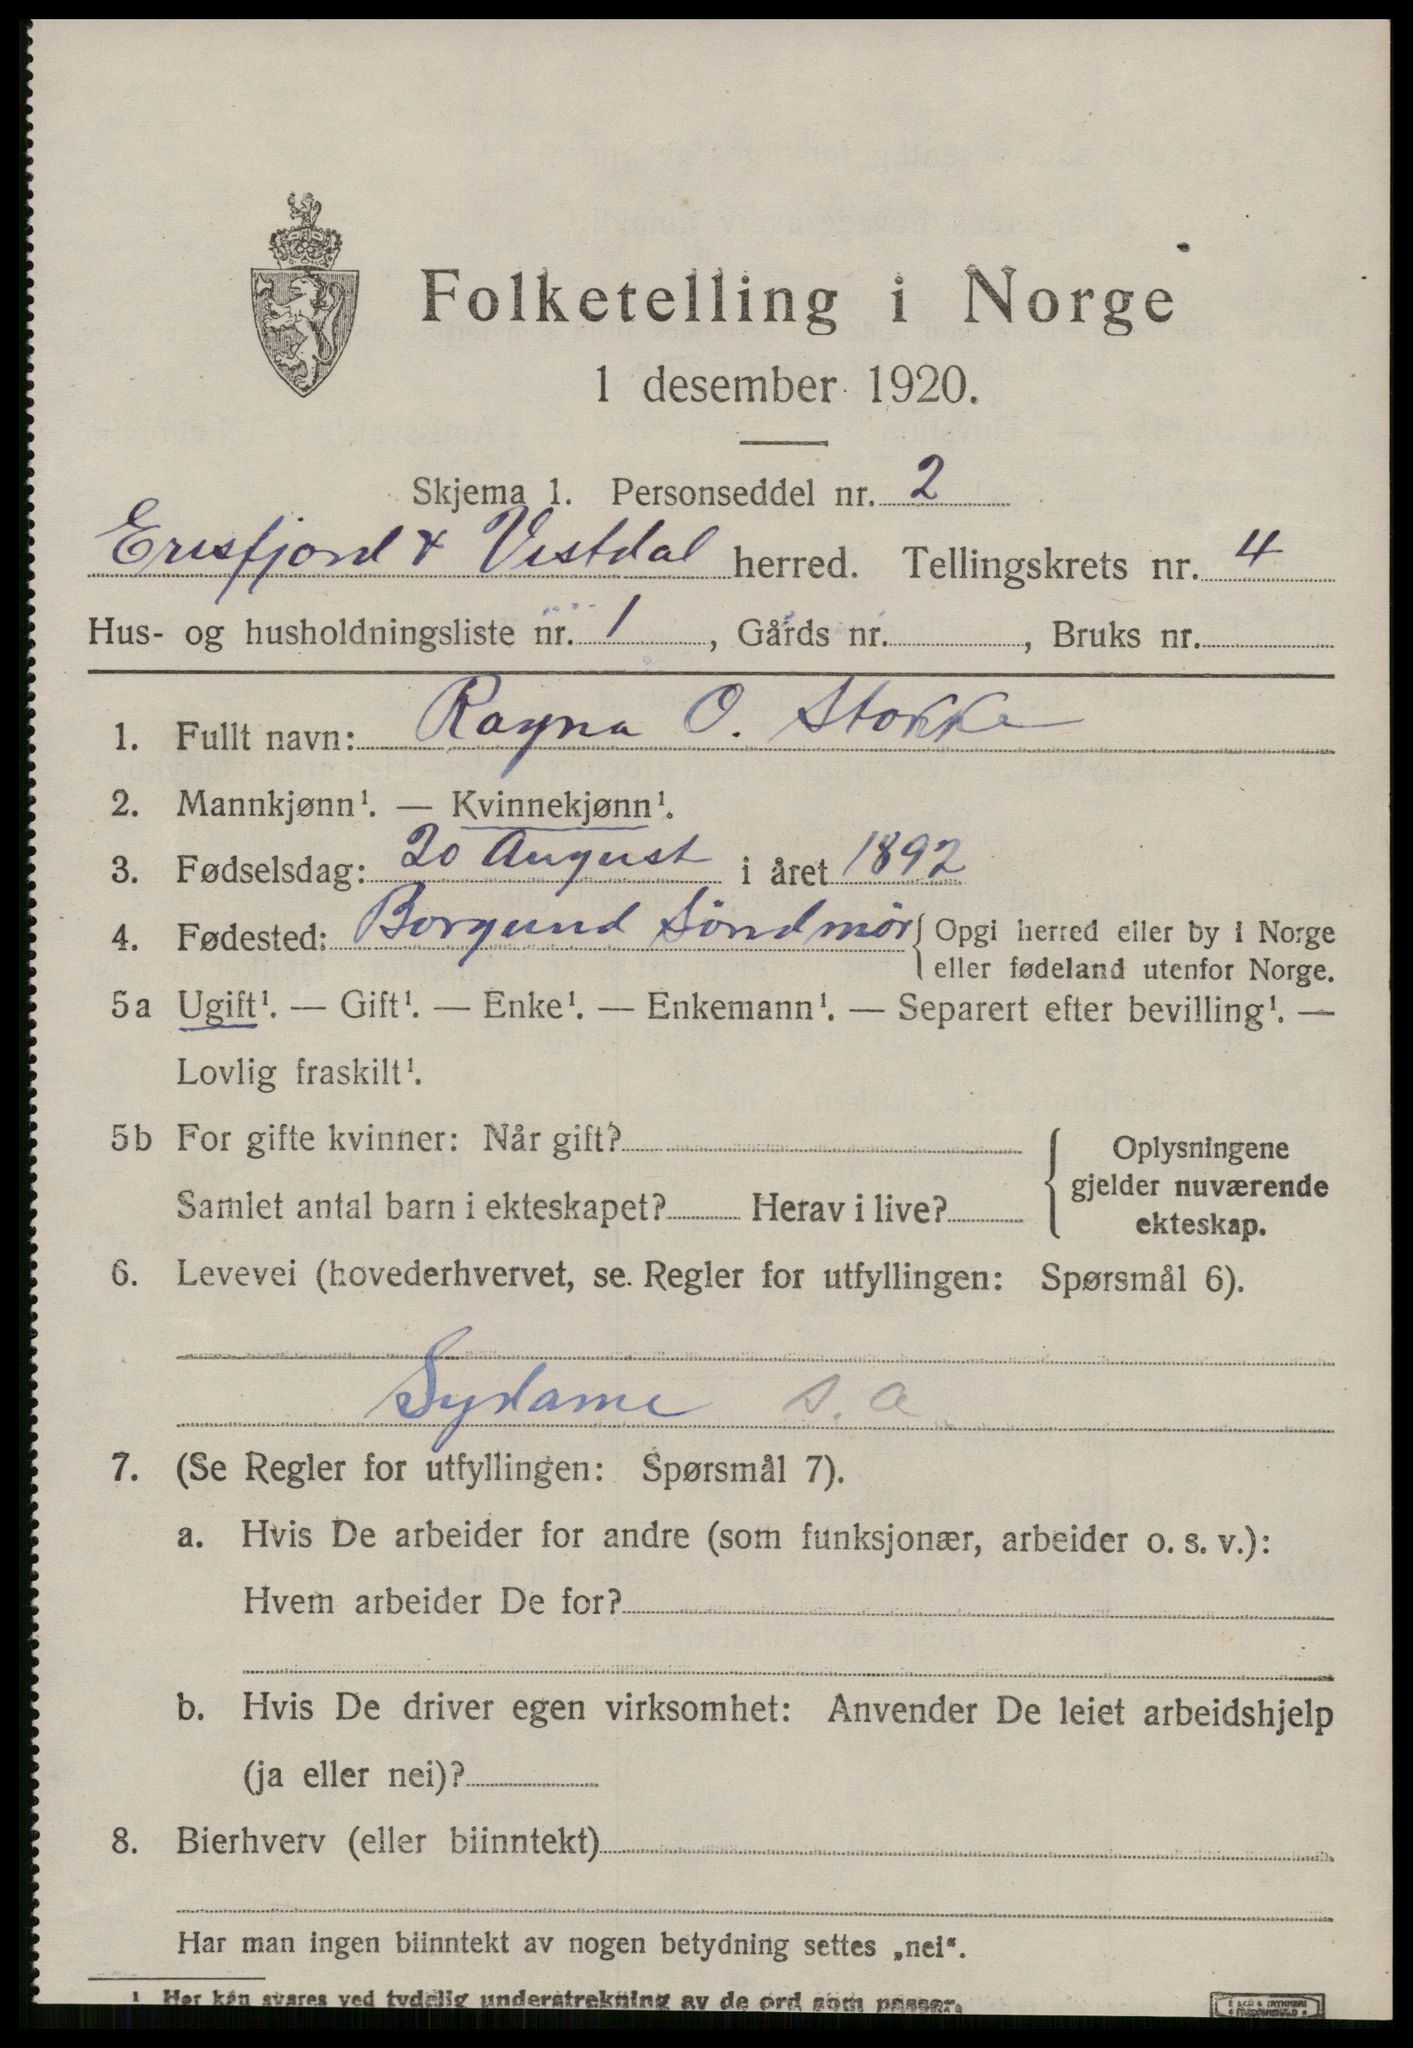 Folketelling i Norge
1 desember 1920.
Skjema 1. Personseddel nr. 2
Eresfjord & Vistdal herred. Tellingskrets nr. 4
Hus- og husholdningsliste nr. 1, Gårds nr. , Bruks nr.
1. Fullt navn: Ragna O. Stokke
2. Mannkjønn¹. — Kvinnekjønn¹.
3. Fødselsdag: 20 August i året 1892
4. Fødested: Borgund Söndmör { Opgi herred eller by i Norge
eller fødeland utenfor Norge.
5a Ugift¹. — Gift¹. — Enke¹. — Enkemann¹. — Separert efter bevilling¹. —
Lovlig fraskilt¹.
5b For gifte kvinner: Når gift?
Samlet antal barn i ekteskapet? Herav i live?
Oplysningene
gjelder nuværende
ekteskap.
6. Levevei (hovederhvervet, se Regler for utfyllingen: Spørsmål 6).
Sydame s. a
7. (Se Regler for utfyllingen: Spørsmål 7).
a. Hvis De arbeider for andre (som funksjonær, arbeider o. s. v.):
Hvem arbeider De for?
b. Hvis De driver egen virksomhet: Anvender De leiet arbeidshjelp
(ja eller nei)?
8. Bierhverv (eller biinntekt)
Har man ingen biinntekt av nogen betydning settes „nei“.
¹ Her kan svares ved tydelig understrekning av de ord som passer.